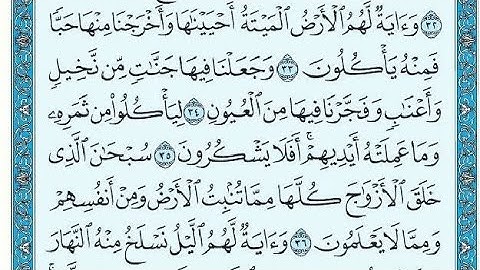 ٣٢ وَءَايَةٌ لَّهُمُ ٱلْأَرْضُ ٱلْمَيْتَةُ أَحْيَيْنَٰهَا وَأَخْرَجْنَا مِنْهَا حَبًّا
فَمِنْهُ يَأْكُلُونَ ٣٣ وَجَعَلْنَا فِيهَا جَنَّٰتٍ مِّن نَّخِيلٍ
وَأَعْنَٰبٍ وَفَجَّرْنَا فِيهَا مِنَ ٱلْعُيُونِ ٣٤ لِيَأْكُلُوا۟ مِن ثَمَرِهِۦ
وَمَا عَمِلَتْهُ أَيْدِيهِمْ ۖ أَفَلَا يَشْكُرُونَ ٣٥ سُبْحَٰنَ ٱلَّذِى
خَلَقَ ٱلْأَزْوَٰجَ كُلَّهَا مِمَّا تُنۢبِتُ ٱلْأَرْضُ وَمِنْ أَنفُسِهِمْ
وَمِمَّا لَا يَعْلَمُونَ ٣٦ وَءَايَةٌ لَّهُمُ ٱلَّيْلُ نَسْلَخُ مِنْهُ ٱلنَّهَارَ